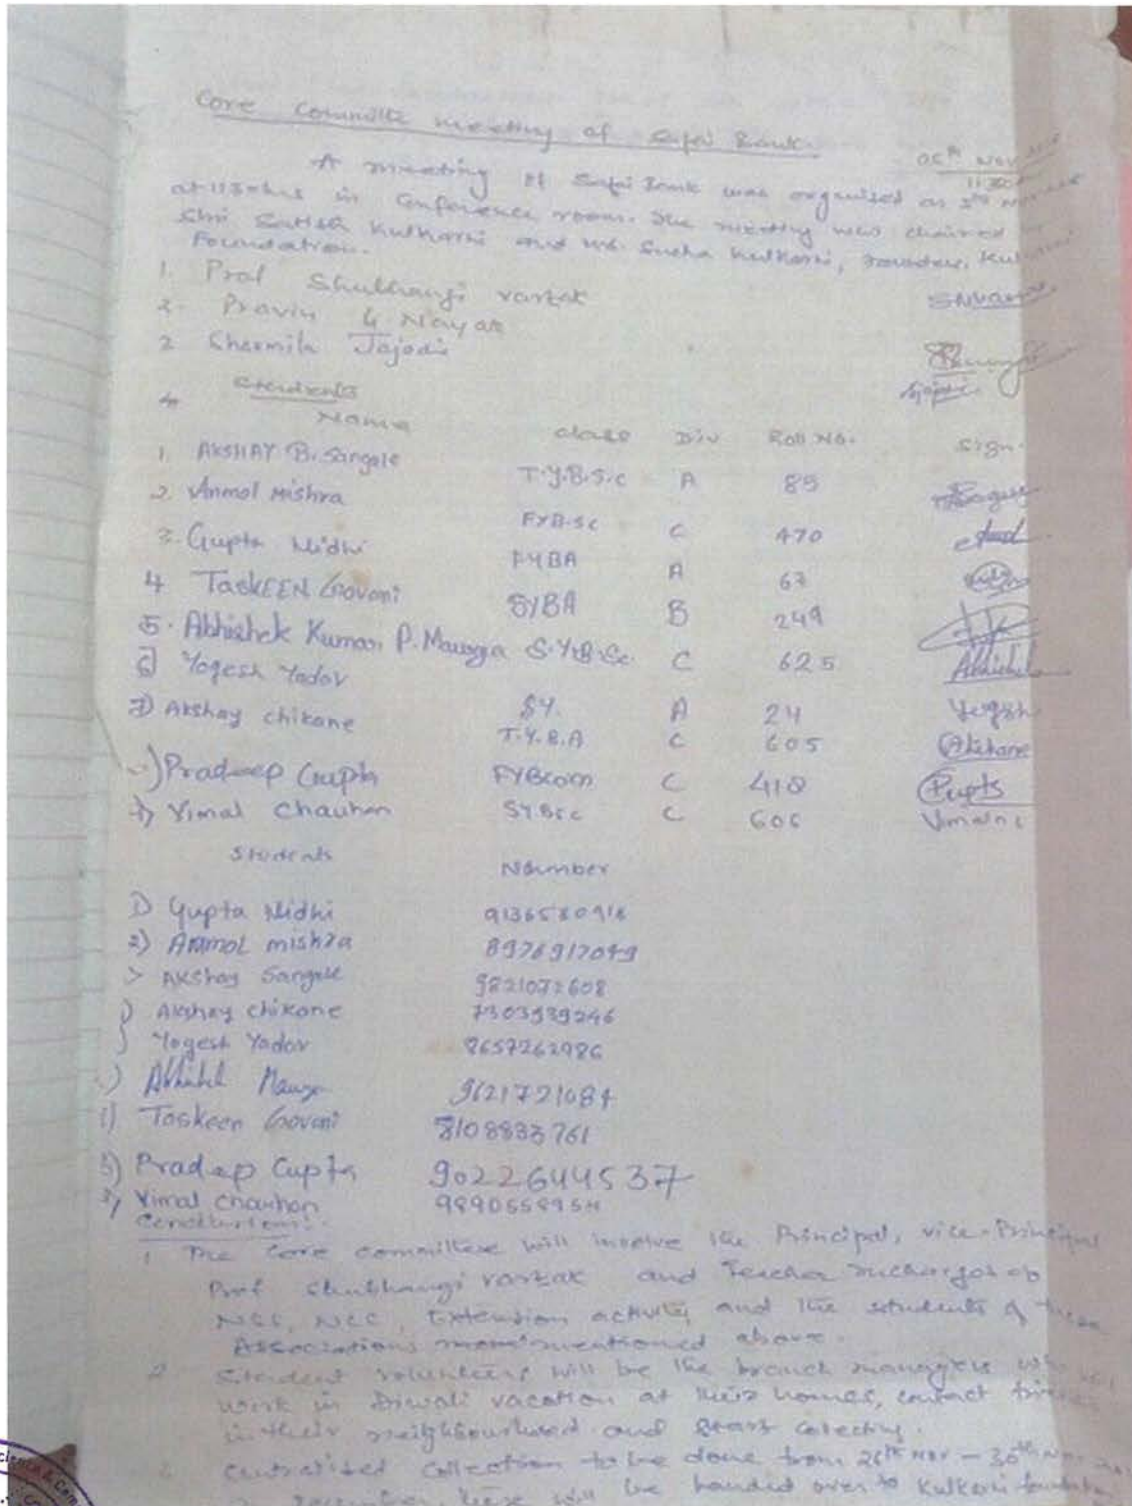 Core Committe meeting of Safai Bank.
05th Nov
11.30
A meeting of Safai Bank was organised on 5th Nov
at 1130 hrs in Conference room. The meeting was chaired by
Shri Satish Kulkarni and Ms. Sucha Kulkarni, Founders, Kulkarni
Foundation.
1. Prof Shubhangi Vartak
2. Pravin G Nayak
2 Sharmila Jajodia
Students
4.
Name Class Div Roll No. Sign.
1. AKSHAY B. Sangale T.Y.B.S.c A 85
2. Anmol Mishra FYB.Sc C 470
3. Gupta Nidhi FYBA A 67
4 TasKEEN Govani SYBA B 249
5. Abhishek Kumar P. Maurya S.Y.B.Sc. C 625
6] Yogesh Yadav SY. A 24 Yogesh
7) Akshay chikane T.Y.B.A C 605 AChikane
) Pradeep Gupta FYBcom C 418 Pupts
) Vimal Chauhan SYBSc C 606
Students Number
1) Gupta Nidhi
2) ANMOL mishra 8976917049
> AKShay Sangale 9821072608
) Akshay chikane 7303939246
Yogesh Yadav 8657262986
) Maurya 9621721084
) Taskeen Govani 8108833761
) Pradeep Gupta 9022644537
) Vimal Chauhan
Conclusions:-
1 The Core committee will involve the Principal, vice-Principal
Prof Shubhangi Vartak and Teacher Incharges of
NSS, NCC, Extension activity and the students of these
Associations mentioned above.
2 Student volunteers will be the branch managers who will
work in Diwali vacation at their homes, contact
in their neighbourhood and start collecting.
Centralised Collection to be done from 26th Nov – 30th Nov
will be handed over to Kulkarni foundation